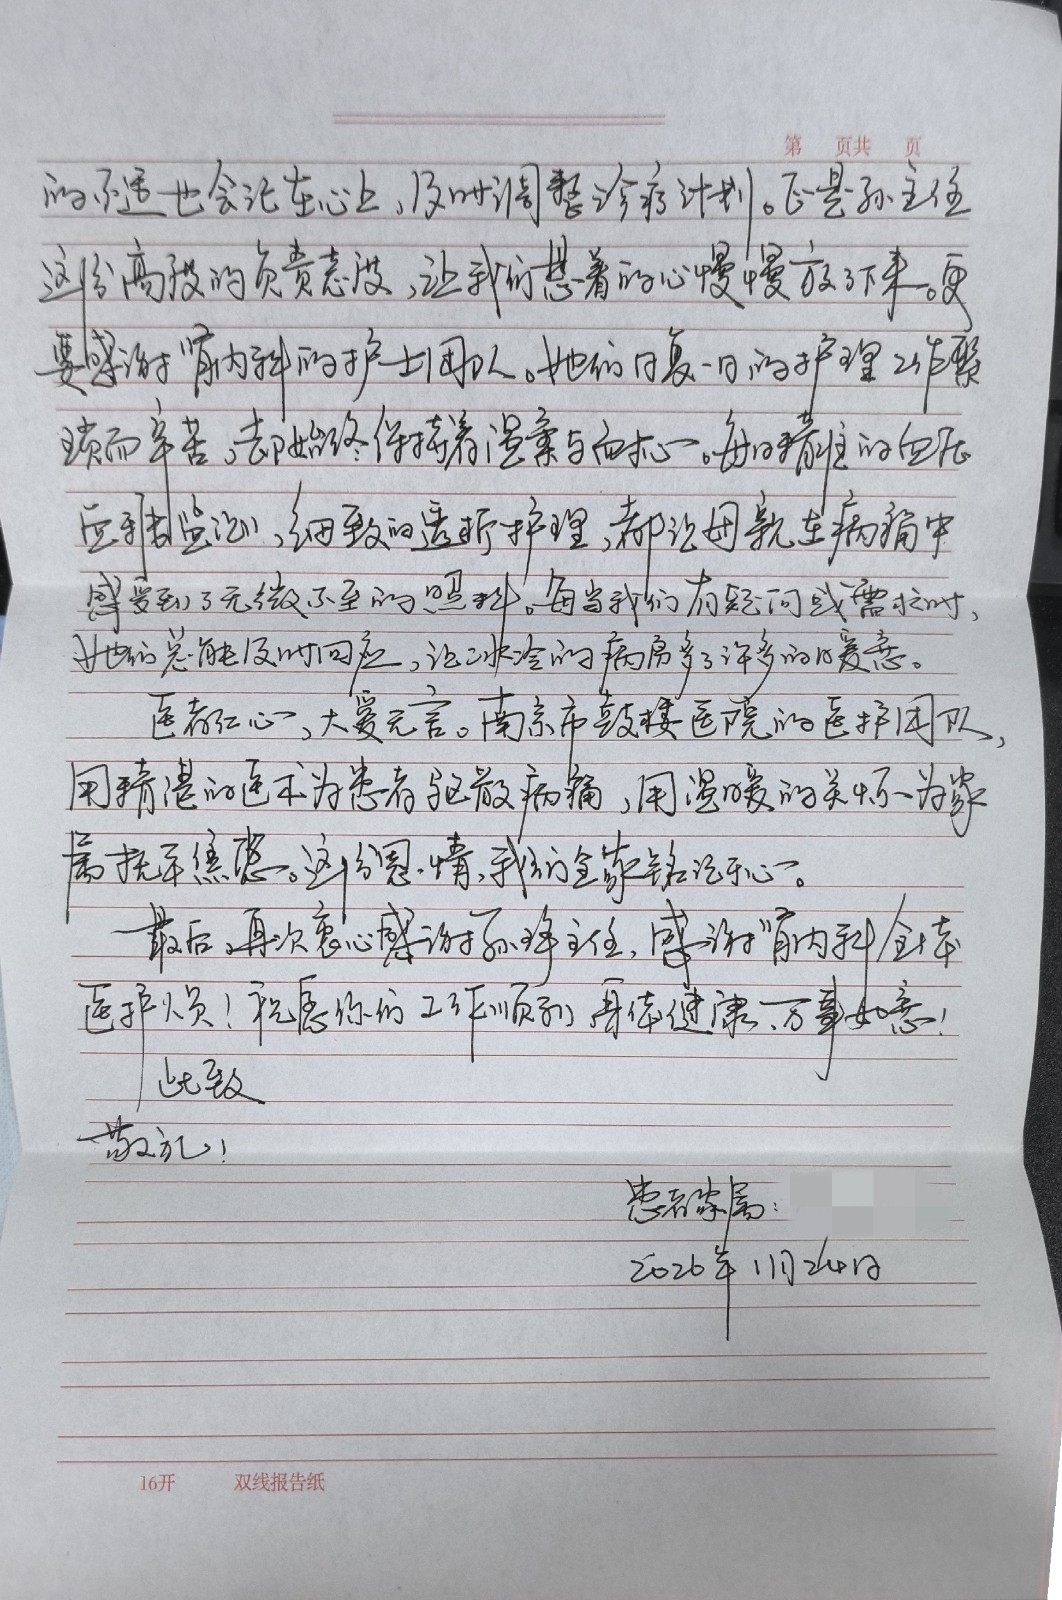 第 页共 页
的不适也会记在心上，及时调整诊疗计划。正是孙主任
这份高度的负责态度，让我们悬着的心慢慢放了下来。更
要感谢肾内科的护士团队。她们日复一日的护理工作繁
琐而辛苦，却始终保持着温柔与耐心。每日精准的血压
监测，细致的透析护理，都让母亲在病痛中
感受到了无微不至的照料。每当我们有疑问或需求时，
她们总能及时回应，让冰冷的病房多了许多的暖意。
医者仁心，大爱无言。南京市鼓楼医院的医护团队，
用精湛的医术为患者驱散病痛，用温暖的关怀为家
属抚平焦虑。这份恩情，我们全家铭记于心。
最后，再次衷心感谢孙主任，感谢肾内科全体
医护人员！祝愿你们工作顺利，身体健康、万事如意！
此致
敬礼！
患者家属：
2026年1月24日
16开 双线报告纸